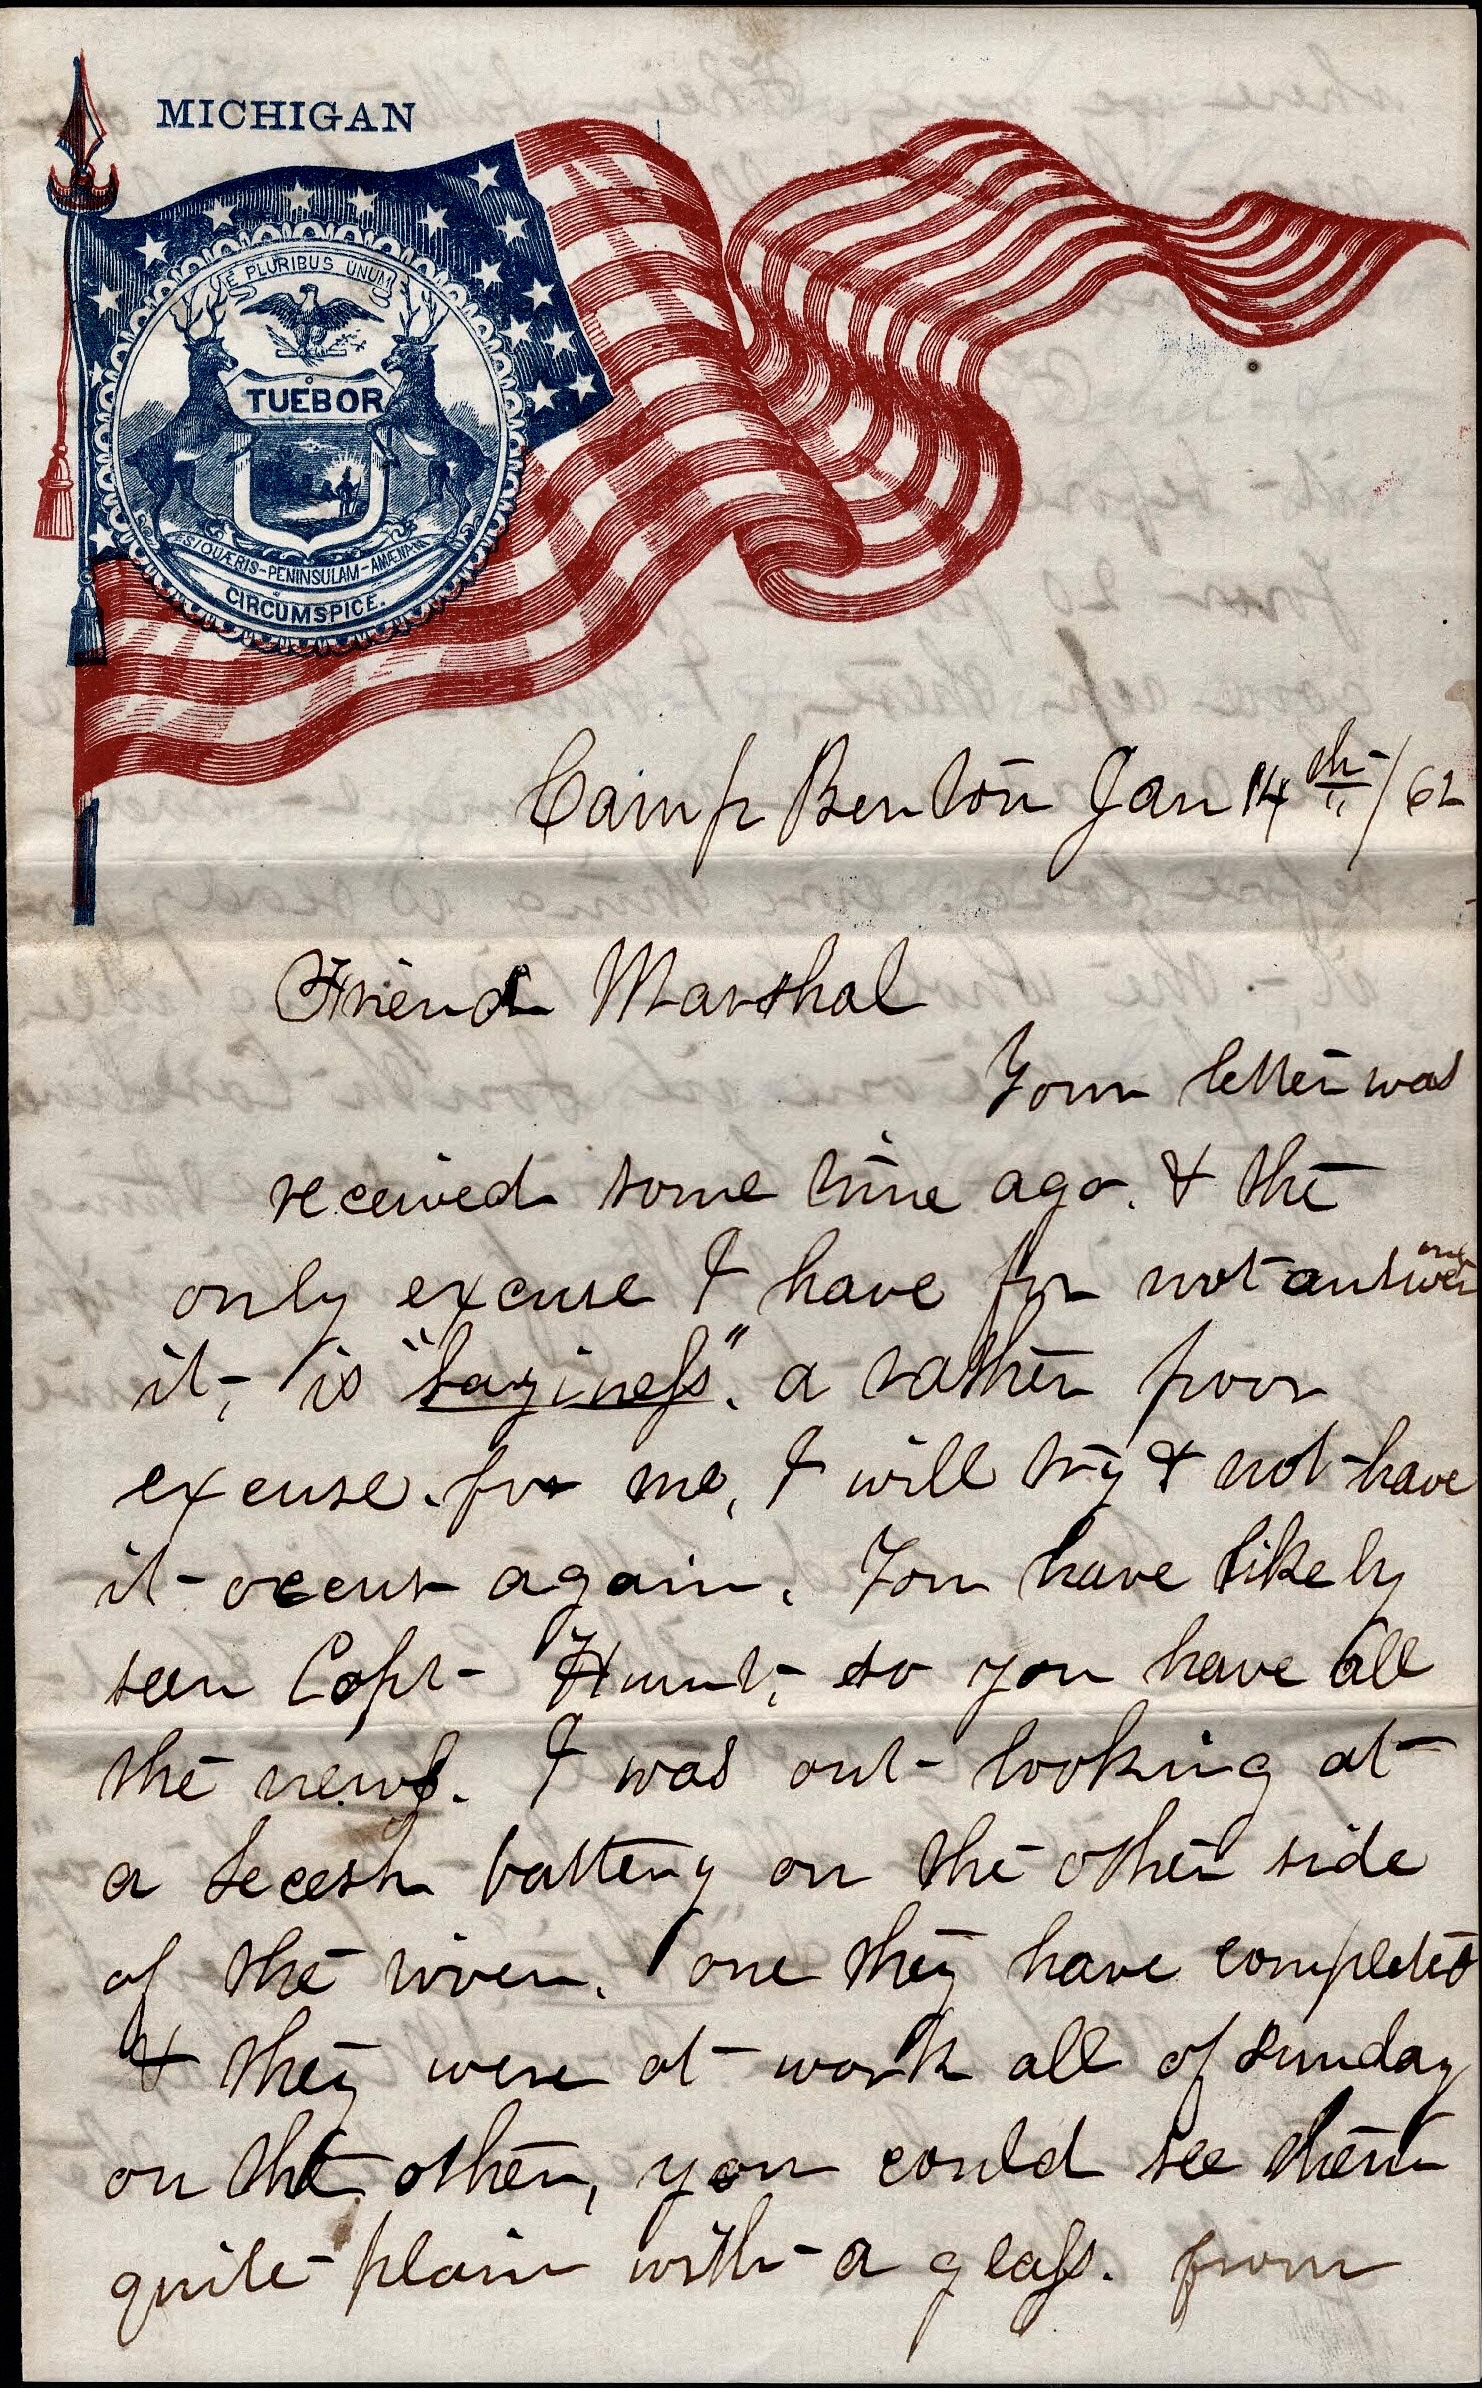 MICHIGAN
E PLURIBUS UNUM
TUEBOR
SI QUÆRIS-PENINSULAM-AMÆNAM
CIRCUMSPICE.
Camp Benton Jan 14th/62
Friend Marshal
Your letter was
received some time ago. & the
only excuse I have for not answering
it, is "laziness". a rather poor
excuse. for me, I will try & not have
it occur again. You have likely
seen Capt Hunt, so you have all
the news. I was out looking at
a secesh battery on the other side
of the river. one they have completed
& they were at work all of Sunday
on the other, you could see them
quite plain with a glass. from